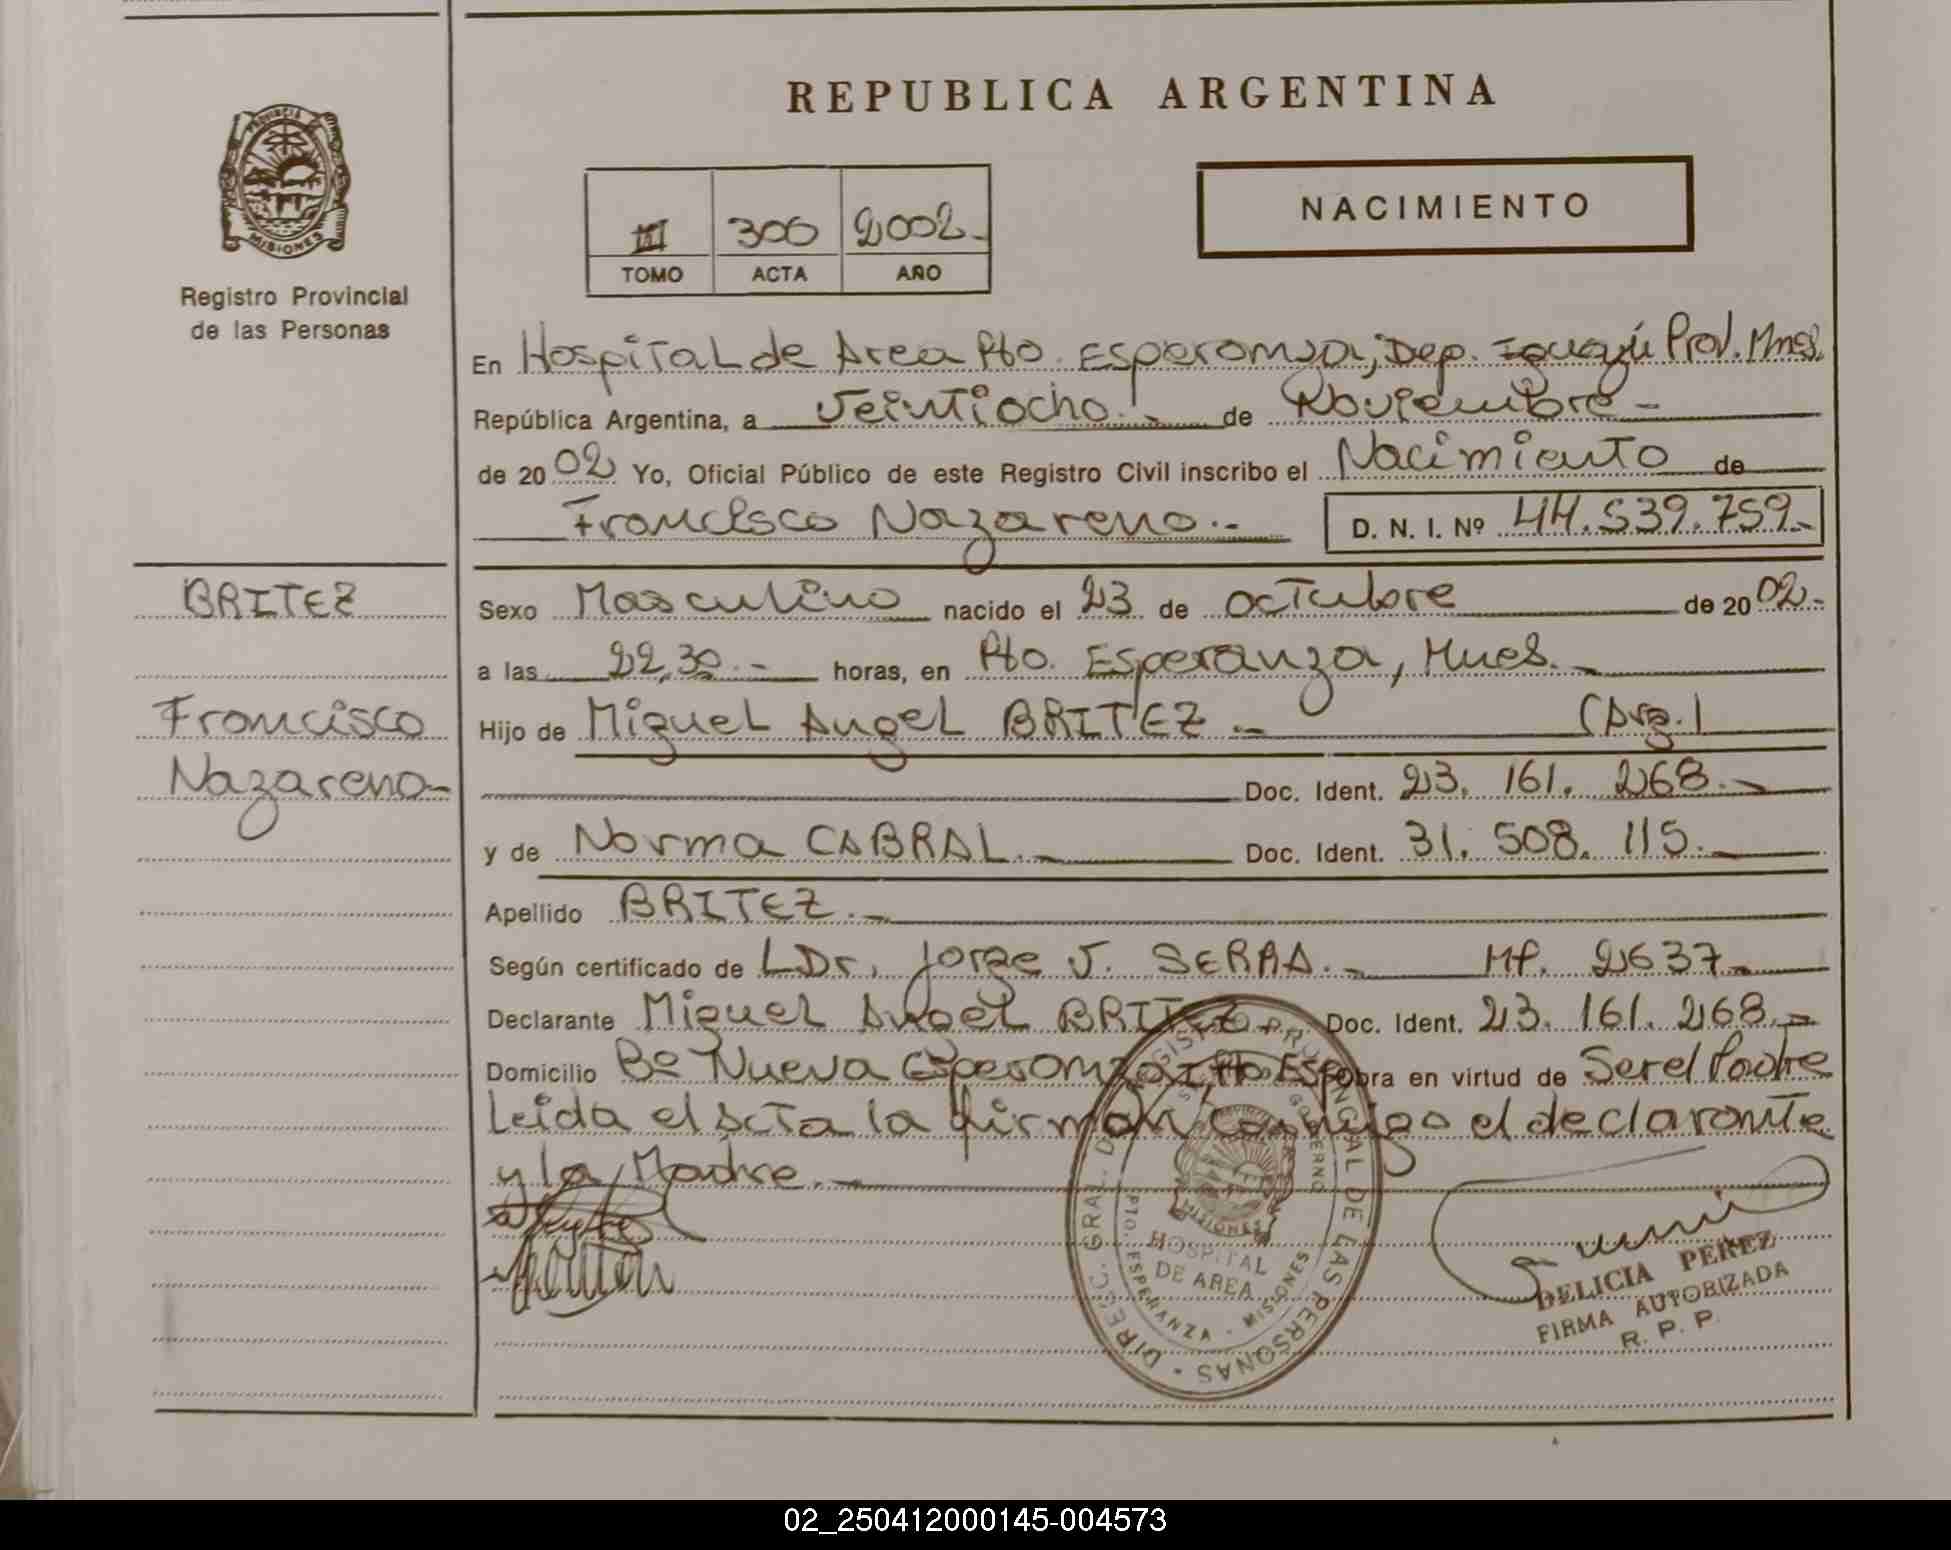 REPUBLICA ARGENTINA
PROVINCIA
MISIONES
Registro Provincial
de las Personas
III 300 2002.-
TOMO ACTA AÑO
NACIMIENTO
En Hospital de Area Pto. Esperanza, Dep. Iguazú Prov. Mnes.
República Argentina, a Veintiocho.- de Noviembre-
de 2002 Yo, Oficial Público de este Registro Civil inscribo el Nacimiento de
Francisco Nazareno.- D. N. I. Nº 44.539.759.-
BRITEZ
Francisco
Nazareno-
Sexo Masculino nacido el 23 de octubre de 2002.-
a las 22,30.- horas, en Pto. Esperanza, Mnes.-
Hijo de Miguel Angel BRITEZ.- (Arg.)
Doc. Ident. 23. 161. 268.-
y de Norma CABRAL.- Doc. Ident. 31. 508. 115.-
Apellido BRITEZ.-
Según certificado de Dr. Jorge J. SERRA.- MP. 2637-
Declarante Miguel Angel BRITEZ.- Doc. Ident. 23. 161. 268.-
Domicilio Bº Nueva Esperanza, Pto Esp Obra en virtud de Ser el Padre
Leida el Acta la firman conmigo el declarante
y la Madre.-
DIREC. GRAL. DE REGISTRO PROVINCIAL DE LAS PERSONAS
GOBIERNO
MISIONES
HOSPITAL
DE AREA
PTO. ESPERANZA - MISIONES
DELICIA PEREZ
FIRMA AUTORIZADA
R. P. P.
02_250412000145-004573